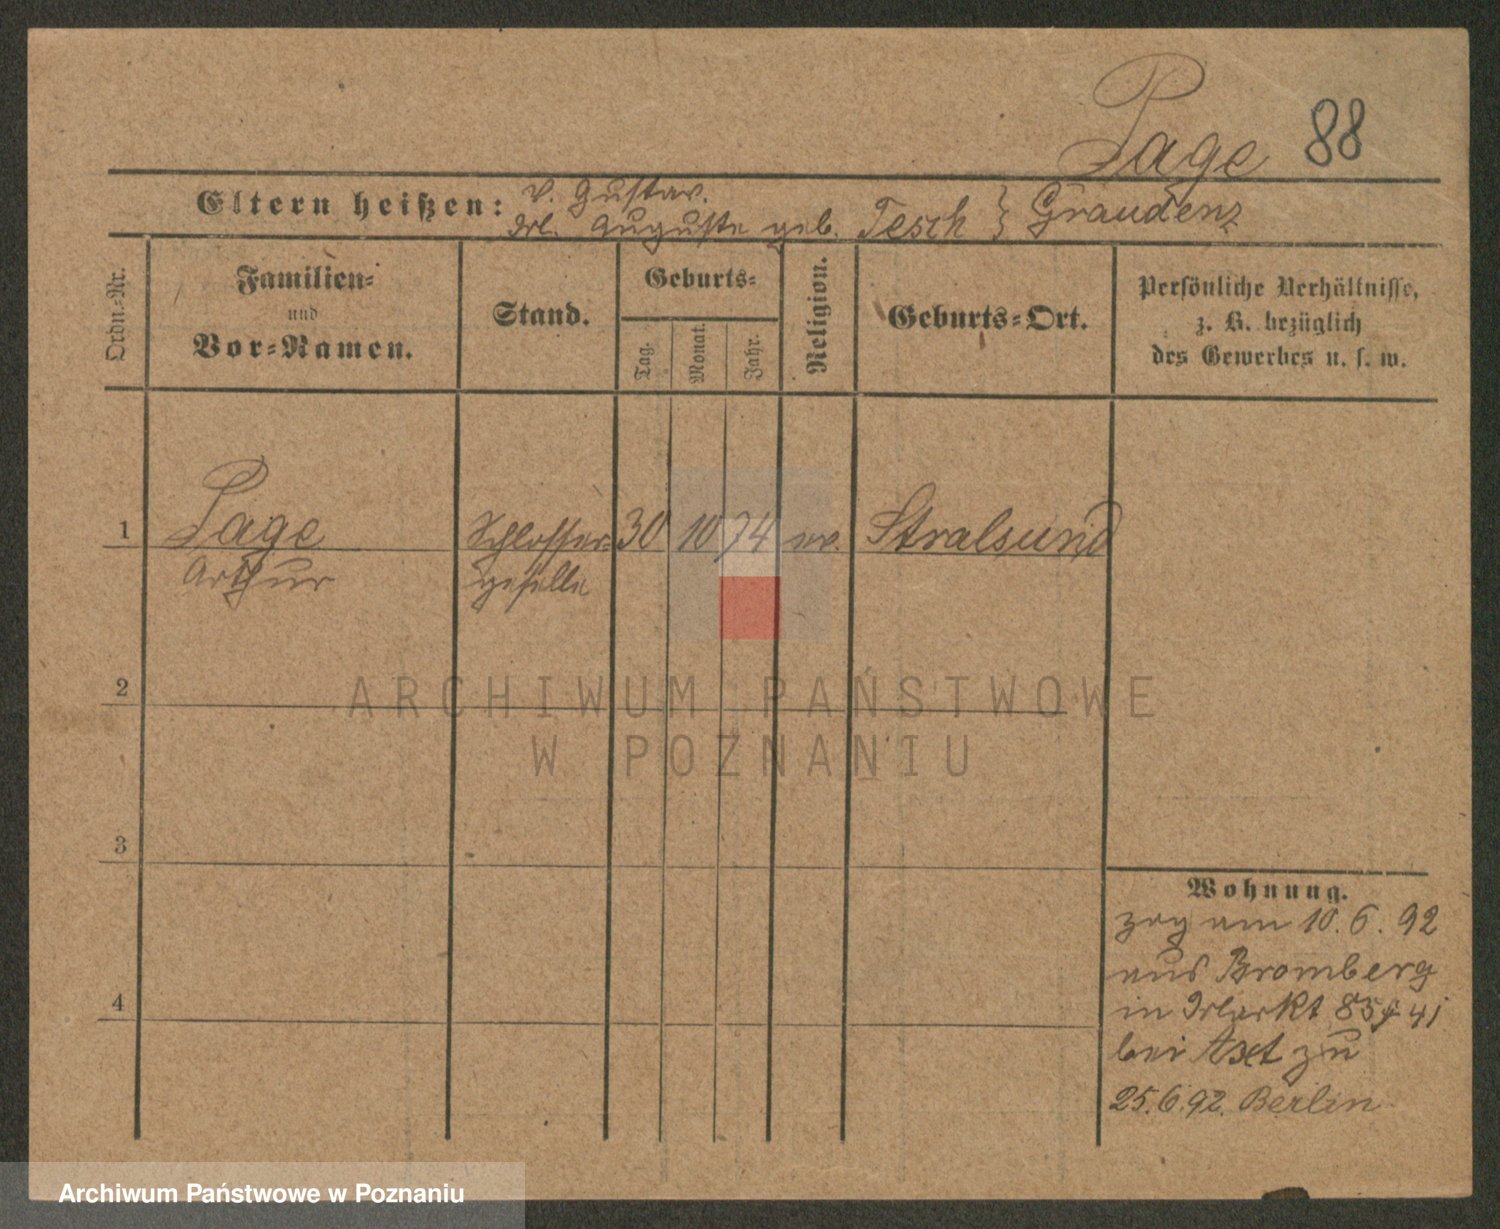 Page 88
Eltern heißen: V. Gustav.
M. Auguste geb. Tesch } Graudenz
Ordn.-Nr.
Familien-
und
Vor-Namen.
Stand.
Geburts-
Tag.
Monat.
Jahr.
Religion.
Geburts-Ort.
Persönliche Verhältnisse,
z. B. bezüglich
des Gewerbes u. s. w.
1 Page Schlosser- 30 10 74 ev. Stralsund
Arthur geselle
2
ARCHIWUM PAŃSTWOWE
W POZNANIU
3
Wohnung.
zog am 10.6.92
aus Bromberg
in 41
4
bei Axt zu
25.6.92. Berlin
Archiwum Państwowe w Poznaniu